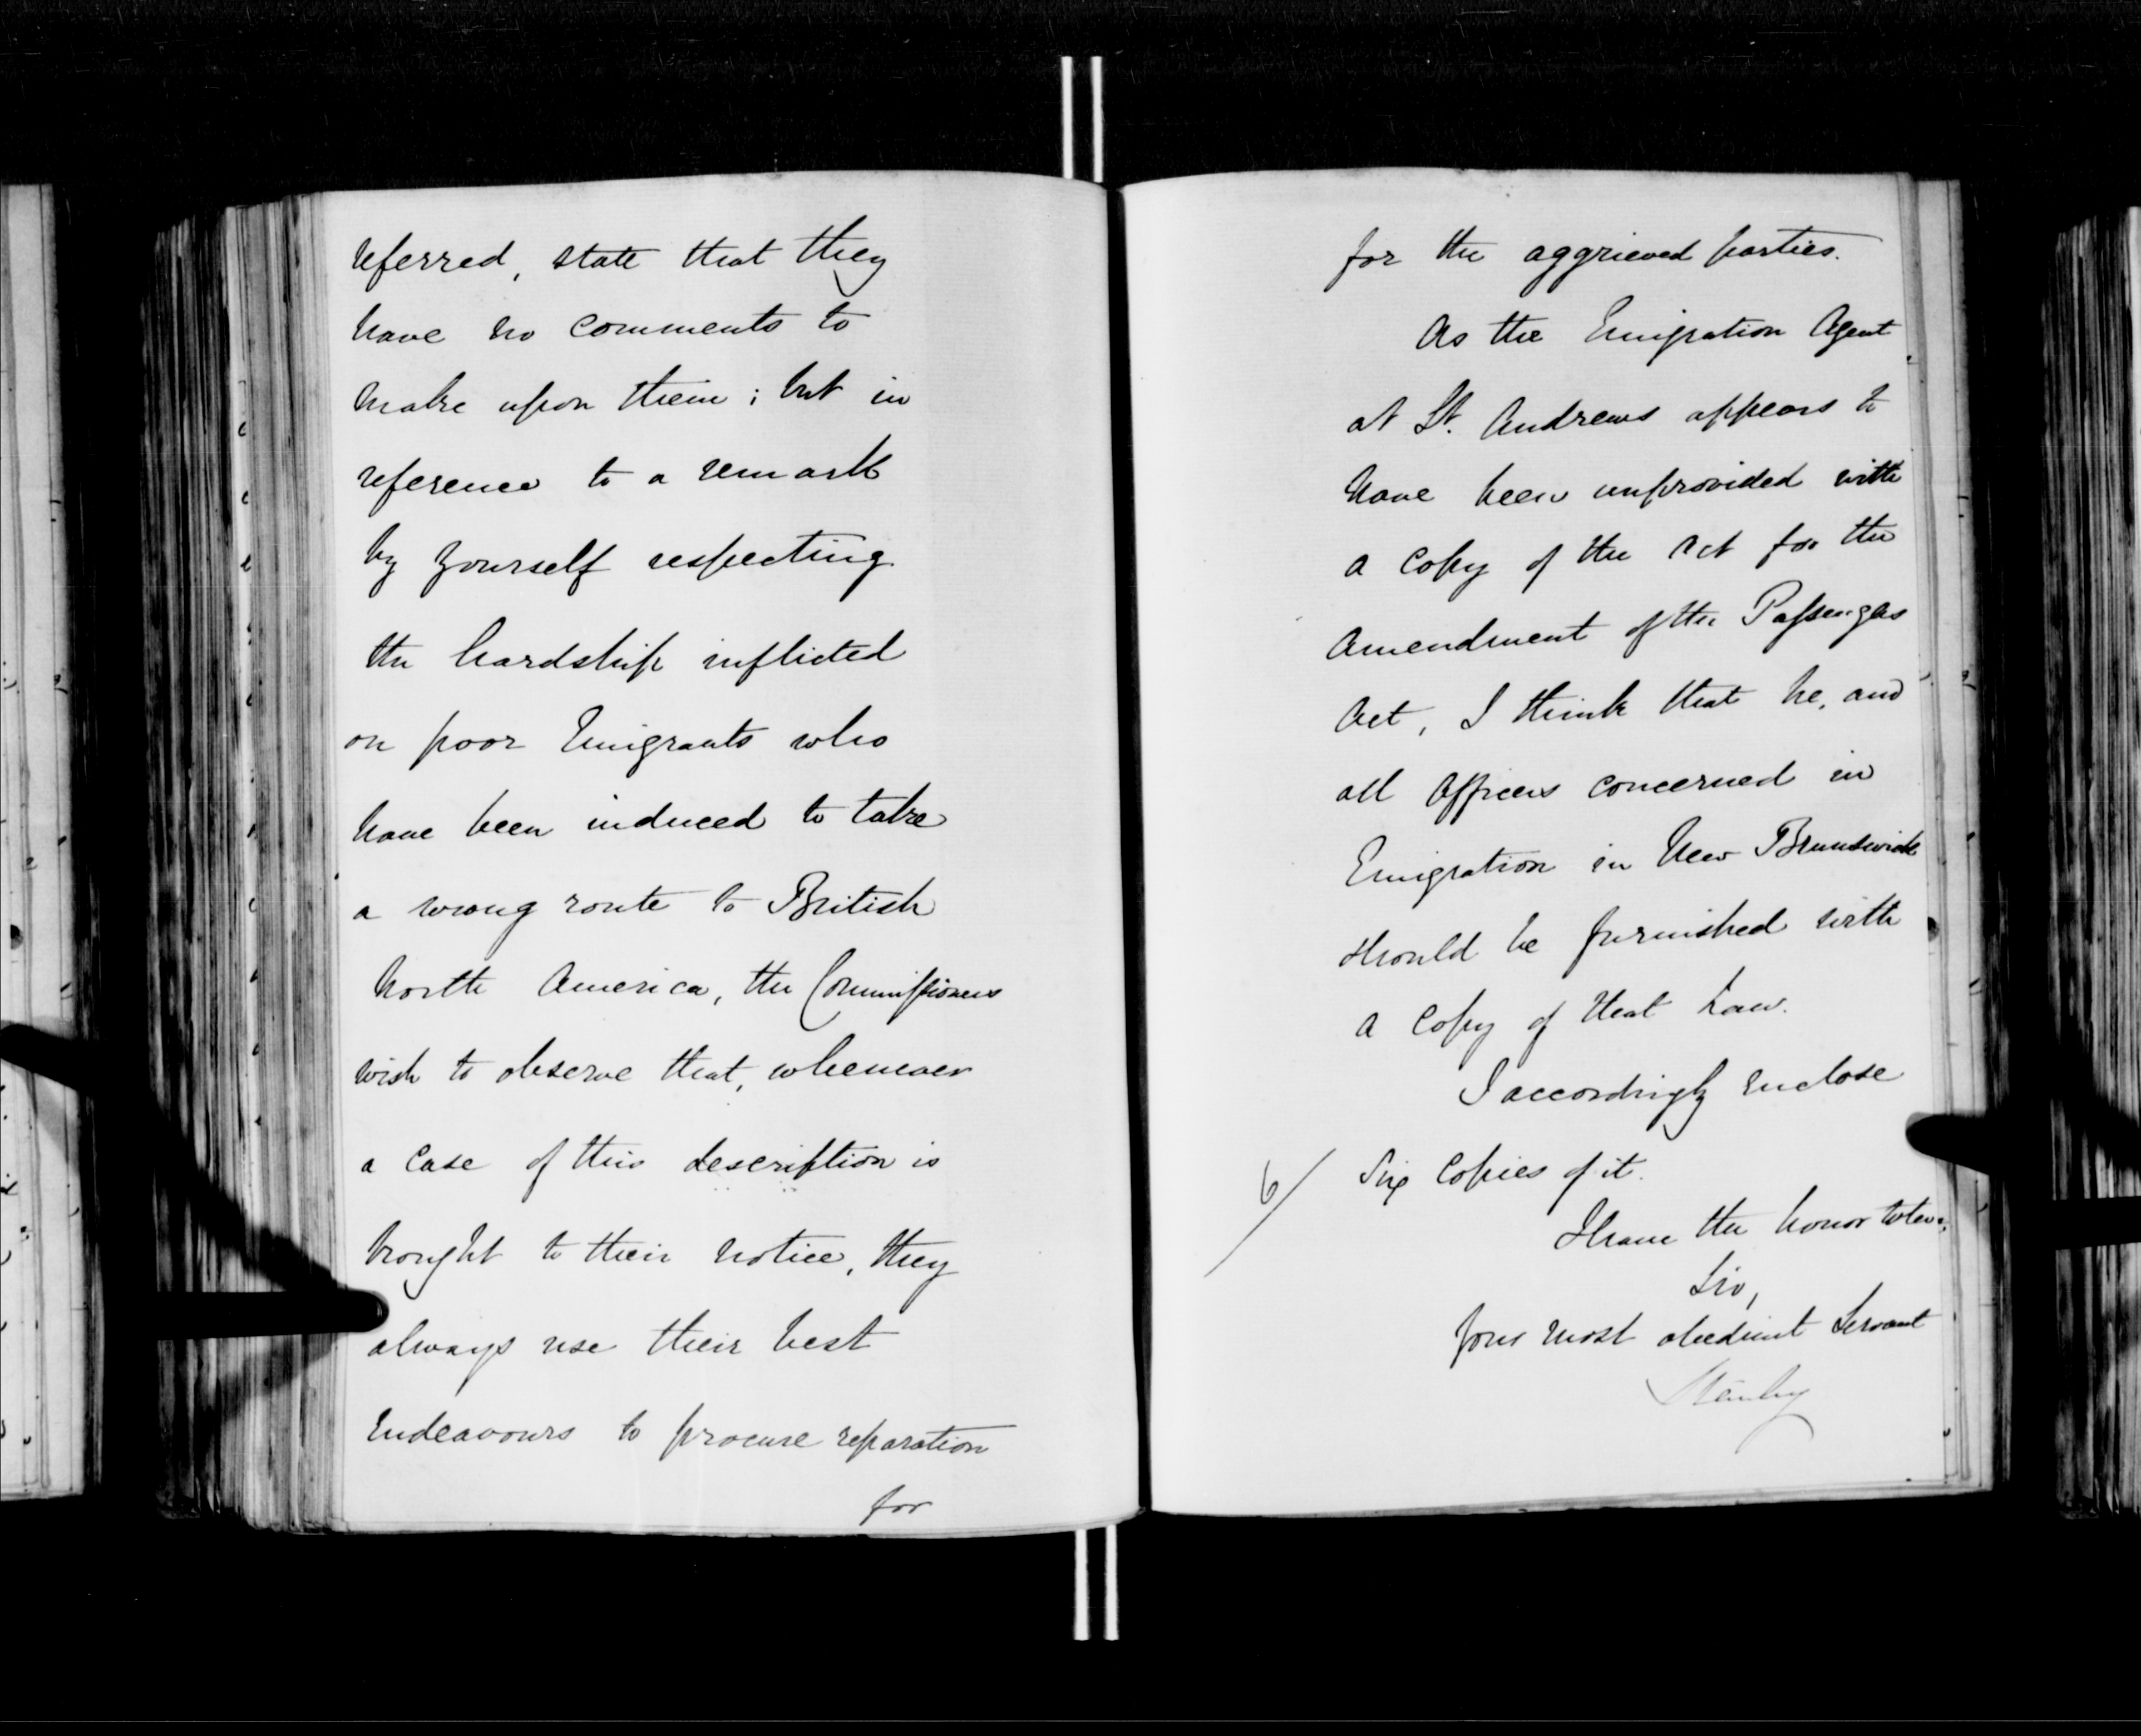 referred, state that they
have no comments to
make upon them; but in
reference to a remark
by yourself respecting
the hardship inflicted
on poor Emigrants who
have been induced to take
a wrong route to British
North America, the Commissioners
wish to observe that, whenever
a case of this description is
brought to their notice, they
always use their best
Endeavours to procure reparation
for
for the aggrieved parties.
As the Emigration Agent
at St. Andrews appears to
have been unprovided with
a copy of the Act for the
Amendment of the Passengers
Act, I think that he, and
all Officers concerned in
Emigration in New Brunswick
should be furnished with
a copy of that Law.
I accordingly enclose
6/ Six Copies of it.
I have the honor to be,
Sir,
Your most obedient Servant
Stanley